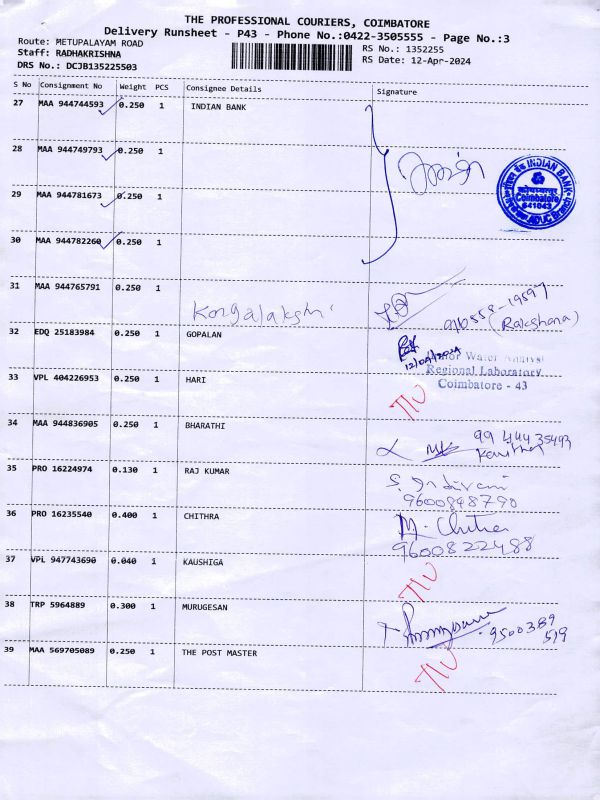 THE PROFESSIONAL COURIERS, COIMBATORE
Delivery Runsheet - P43 - Phone No.:0422-3505555 - Page No.:3
Route: METUPALAYAM ROAD
RS No.: 1352255
Staff: RADHAKRISHNA
RS Date: 12-Apr-2024
DRS No.: DCJB135225503
S No Consignment No Weight PCS Consignee Details Signature
27 MAA 944744593 0.250 1 INDIAN BANK
28 MAA 944749793 0.250 1
INDIAN BANK
Coimbatore
641043
29 MAA 944781673 0.250 1
30 MAA 944782260 0.250 1
31 MAA 944765791 0.250 1
(Rakshana)
32 EDQ 25183984 0.250 1 GOPALAN
12/04/2024
Regional Laboratory
Coimbatore - 43
33 VPL 404226953 0.250 1 HARI
34 MAA 944836905 0.250 1 BHARATHI
35 PRO 16224974 0.130 1 RAJ KUMAR
9600848790
36 PRO 16235540 0.400 1 CHITHRA
M. Chitra
9600822488
37 VPL 947743690 0.040 1 KAUSHIGA
38 TRP 5964889 0.300 1 MURUGESAN
9500389
519
39 MAA 569705089 0.250 1 THE POST MASTER